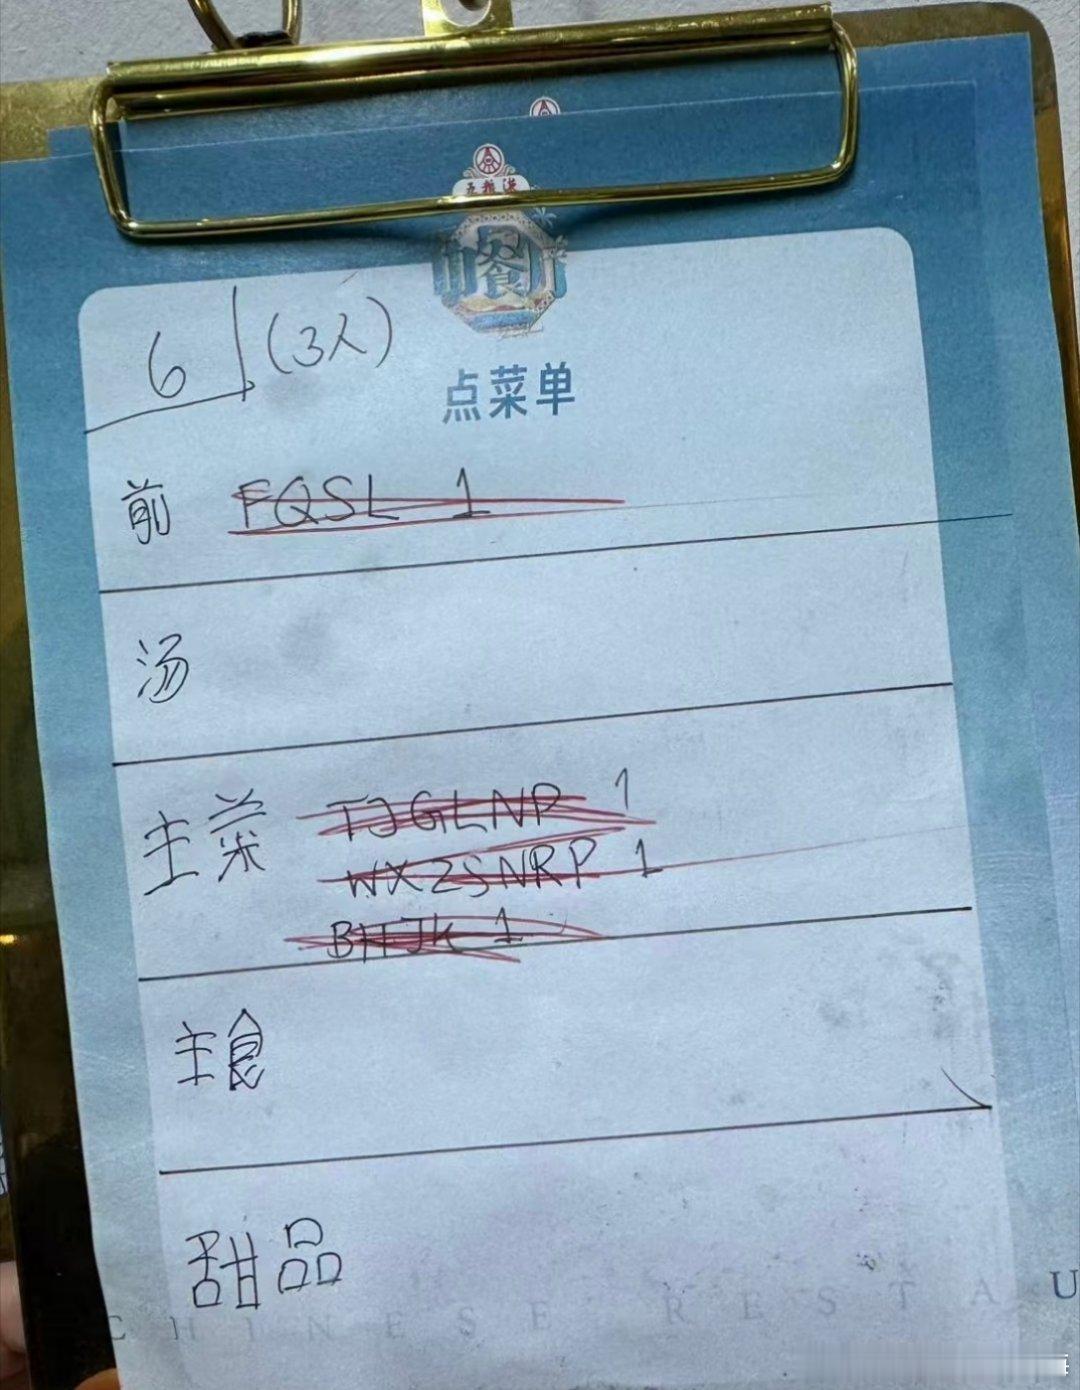 五粮液
餐厅
6 (3人)
点菜单
前 FQSL 1
汤
主菜 TJGLNP 1
WXZSNRP 1
BHTJK 1
主食
甜品
CHINESE RESTAU